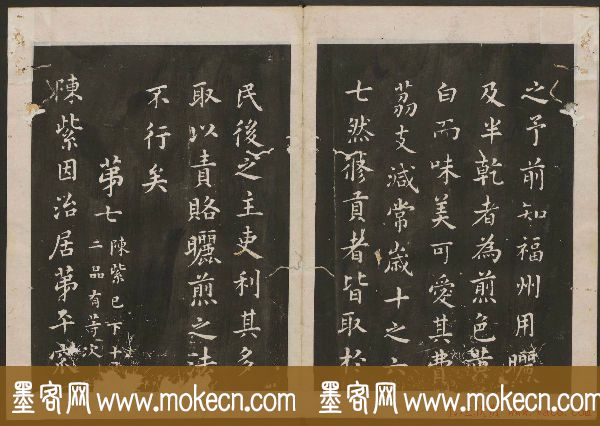 之予前知福州用曬
及半乾者為煎色黃
白而味美可愛其費
荔支減常歲十之六
七然修貢者皆取於
民後之主吏利其多
取以責賂曬煎之法
不行矣
第七
陳紫已下十
二品有等次
陳紫因治居第平
墨客网 www.mokecn.com 墨客网 www.mokecn.com